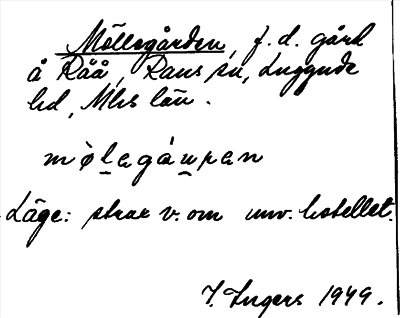 Möllegården, f. d. gård
å Råå, Raus sn, Luggude
hd, Mlhs län.
mø̀lagáu̯ran
Läge: strax v. om nuv. hotellet.
J. Ingers 1949.